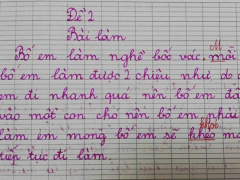 Đề 2
Bài làm
Bố em làm nghề bốc vác. Mỗi
bố em làm được 2 chiều như do
em đi nhanh quá nên bố em đã
vào một con chó nên bố em phải
làm em mong bố em sẽ khỏe
tiếp tục đi làm.